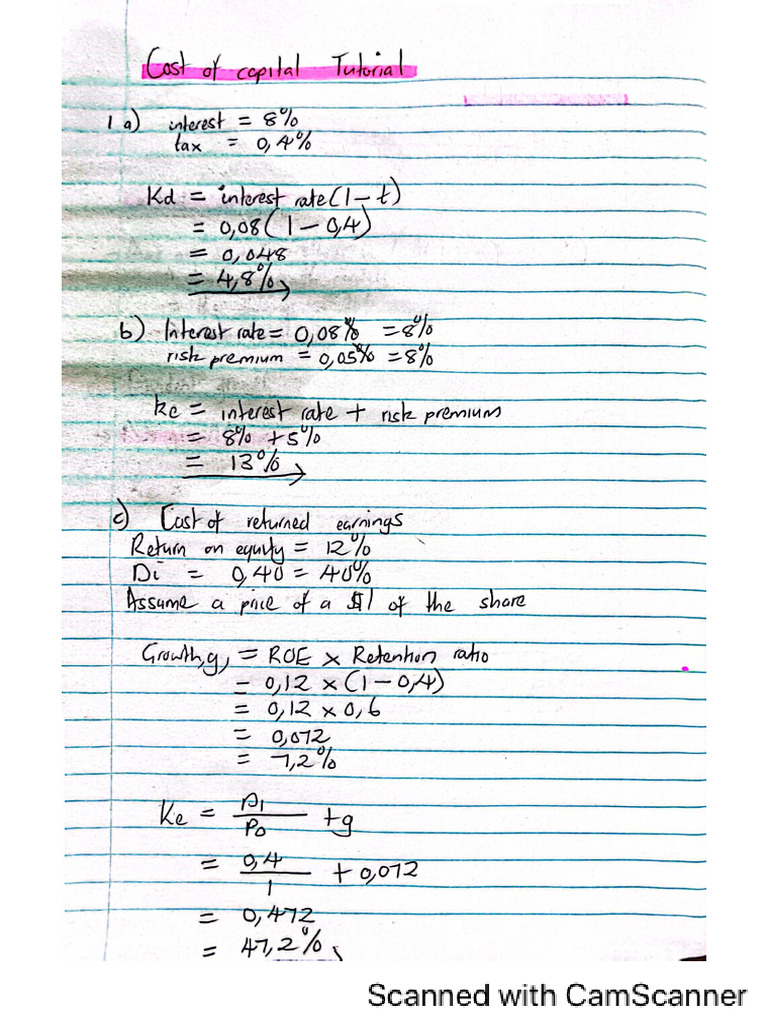 Cost of capital Tutorial
1 a) interest = 8%
tax = 0,4%
Kd = interest rate(1 - t)
= 0,08(1 - 0,4)
= 0,048
= 4,8%
b) Interest rate = 0,08% = 8%
risk premium = 0,05% = 8%
ke = interest rate + risk premium
= 8% + 5%
= 13%
c) Cost of returned earnings
Return on equity = 12%
Di = 0,40 = 40%
Assume a price of a $1 of the share
Growth,g, = ROE x Retention ratio
= 0,12 x (1 - 0,4)
= 0,12 x 0,6
= 0,072
= 7,2%
Ke = D1/P0 + g
= 0,4/1 + 0,072
= 0,472
= 47,2%
Scanned with CamScanner